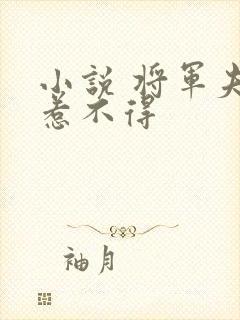 小說 將軍夫
惹不得
袖月